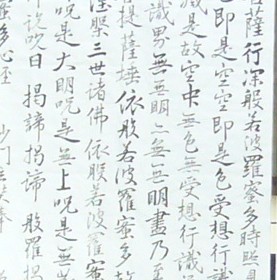 菩薩行深般若波羅蜜多時照見
色即是空空即是色受想行識
滅是故空中無色無受想行識
識界無無明亦無無明盡乃至
菩提薩埵依般若波羅蜜多故
涅槃三世諸佛依般若波羅蜜
呪是大明呪是無上呪是無
說呪曰揭諦揭諦般羅揭
多心經 沙門玄奘奉